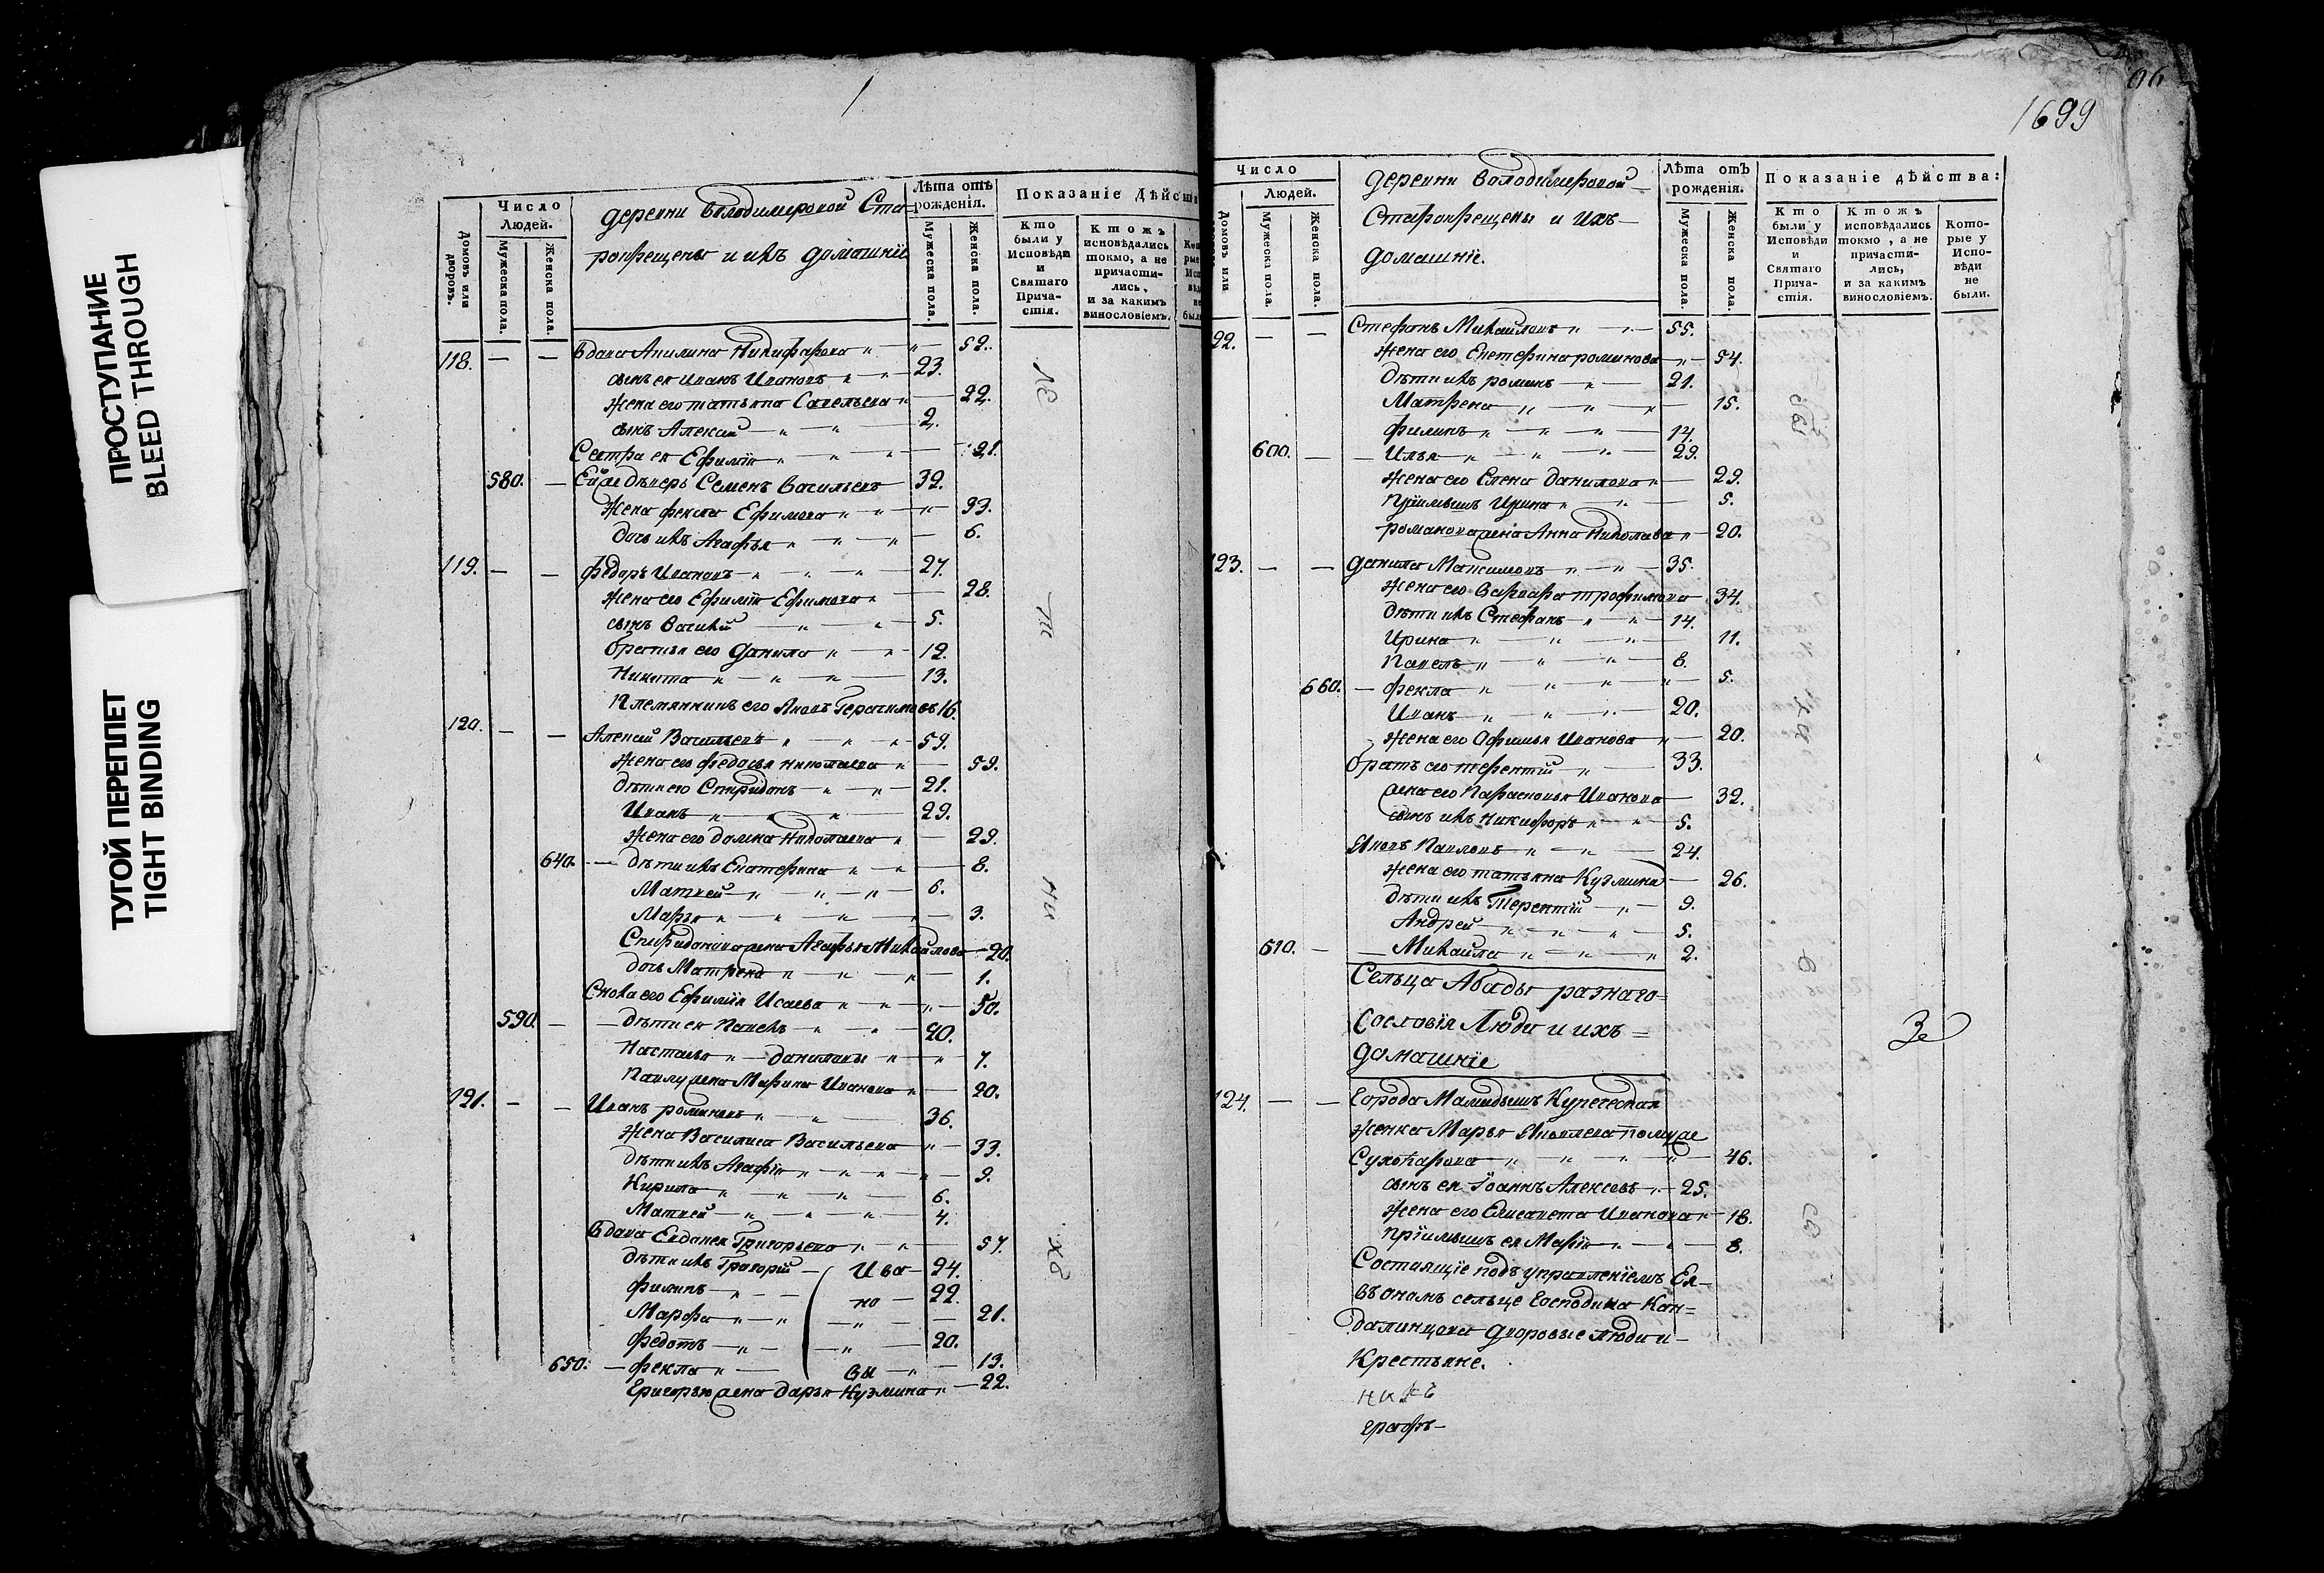 ПРОСТУПАНИЕ
BLEED THROUGH
ТУГОЙ ПЕРЕПЛЕТ
TIGHT BINDING
Число Людей.
Домовъ или дворовъ.
Мужеска пола.
Женска пола.
деревни Володимеровой Ста=
рокрещены и ихъ домашніе
Лѣта отъ рожденія.
Мужеска пола.
Женска пола.
Показаніе Дѣйст
Кто были у Исповѣди и Святаго Прича- стія.
Ктожъ исповѣдались токмо, а не причасти- лись, и за какимъ винословіемъ.
118. — — Вдова Акилина Никифорова „ „ — 52.
сынъ ея Иванъ Ивановъ „ „ — 23.
жена его татьяна Савельева „ — 22.
сынъ Алексей — „ „ — 2.
Сестра ея Ефимія „ — „ — „ — 21.
580. — Семенъ Васильевъ 32.
Жена фекла Ефимова „ — „ — „ 33.
дочь ихъ Агафья „ — „ — „ — 6.
119. — — Федоръ Ивановъ — „ — „ — „ — 27.
Жена его Ефимія Ефимова „ — 28.
сынъ Василій — „ — „ — 5.
братья его Данило „ — „ — 12.
Никита „ — „ — „ — 13.
Племянникъ его Яковъ Герасимовъ 16.
120. — — Алексей Васильевъ „ — „ — „ 59.
Жена его федосья Николаева „ — 59.
дѣти его Спиридонъ — „ — „ — 21.
Иванъ „ — „ — „ — 29.
Жена его домна Николаева „ — 29.
640. — дѣти ихъ Екатерина „ — „ — 8.
Матвей — „ — „ — „ — 6.
Марья „ — „ — „ — „ — 3.
Спиридонова жена Агафья Михайлова — 20.
дочь Матрена „ — „ — „ — 1.
Сноха его Ефимія Исаева „ — „ — „ — 50.
590. — — дѣти ея Павелъ — „ — „ — 20.
Настасья „ — даниловы „ — „ 7.
Павлу жена Марина Иванова „ — 20.
121. — — Иванъ романовъ „ — „ — 36.
Жена Василиса Васильева „ — 33.
дѣти ихъ Агафія „ — „ — „ — 9.
Кирило „ — „ — „ — 6.
Матвей — „ — „ — „ — 4.
Вдова Евдокея Григорьева „ — „ — 57.
дѣти ихъ Григорій — ( Ива — 24.
филипъ — „ — — но — 22.
Марфа „ — „ — „ — 21.
Федотъ — „ — — „ — 20.
650. — фекла „ — вы — „ — 13.
Григорью жена дарья Кузмина „ — 22.
1699
Число
Людей.
Домовъ или
Мужеска пола.
Женска пола.
деревни Володимеровой —
Старокрещены и ихъ —
домашніе.
Лѣта отъ рожденія.
Мужеска пола.
Женска пола.
Показаніе дѣйства:
Кто были у Исповѣди и Святаго Прича- стія.
Ктожъ исповѣдались токмо, а не причасти- лись, и за какимъ винословіемъ.
Кото- рые у Испо- вѣди не были.
22. — — Стефанъ Михайловъ „ — „ — 55.
Жена его Екатерина романова „ — 54.
дѣти ихъ романъ — „ — 21.
Матрена — „ — „ — „ — 15.
филипъ „ — „ — „ — 14.
600. — — Илья „ — „ — „ — 29.
Жена его Елена данилова „ — 29.
пріимышъ Ирина „ — „ — 5.
романова жена Анна Николаева „ — 20.
23. — — данило Максимовъ „ — „ — 35.
Жена его Варвара трофимова 34.
дѣти ихъ Стефанъ — „ — „ — 14.
Ирина „ — „ — „ — 11.
Павелъ „ — „ — „ — 8.
660. — фекла „ — „ — „ — „ — 5.
Иванъ „ — „ — „ — 20.
Жена его Офимья Иванова „ — 20.
братъ его терентій „ — 33.
жена его Парасковья Иванова — 32.
сынъ ихъ Никифоръ „ — „ 5.
Яковъ Павловъ „ — „ — 24.
Жена его татьяна Кузмина — 26.
дѣти ихъ Терентій — „ — 9.
Андрей — „ — „ — „ — 5.
610. — — Михайла „ — „ — „ 2.
Сельца Абады разнаго=
Сословія Люди и ихъ =
домашніе
124. — — Города Мамадышъ Купеческая
женка Марья Яковлева по мужѣ
Сухопарова — „ — „ — „ — „ — 46.
сынъ ея Іоаннъ Алексеевъ „ — 25.
Жена его Елисавета Иванова „ — 18.
пріимышъ ея Марія „ — „ — 8.
Состоящіе подъ управленіемъ Ея —
въ ономъ сельце Господина Кан=
далинцова дворовые люди и —
Крестьяне.